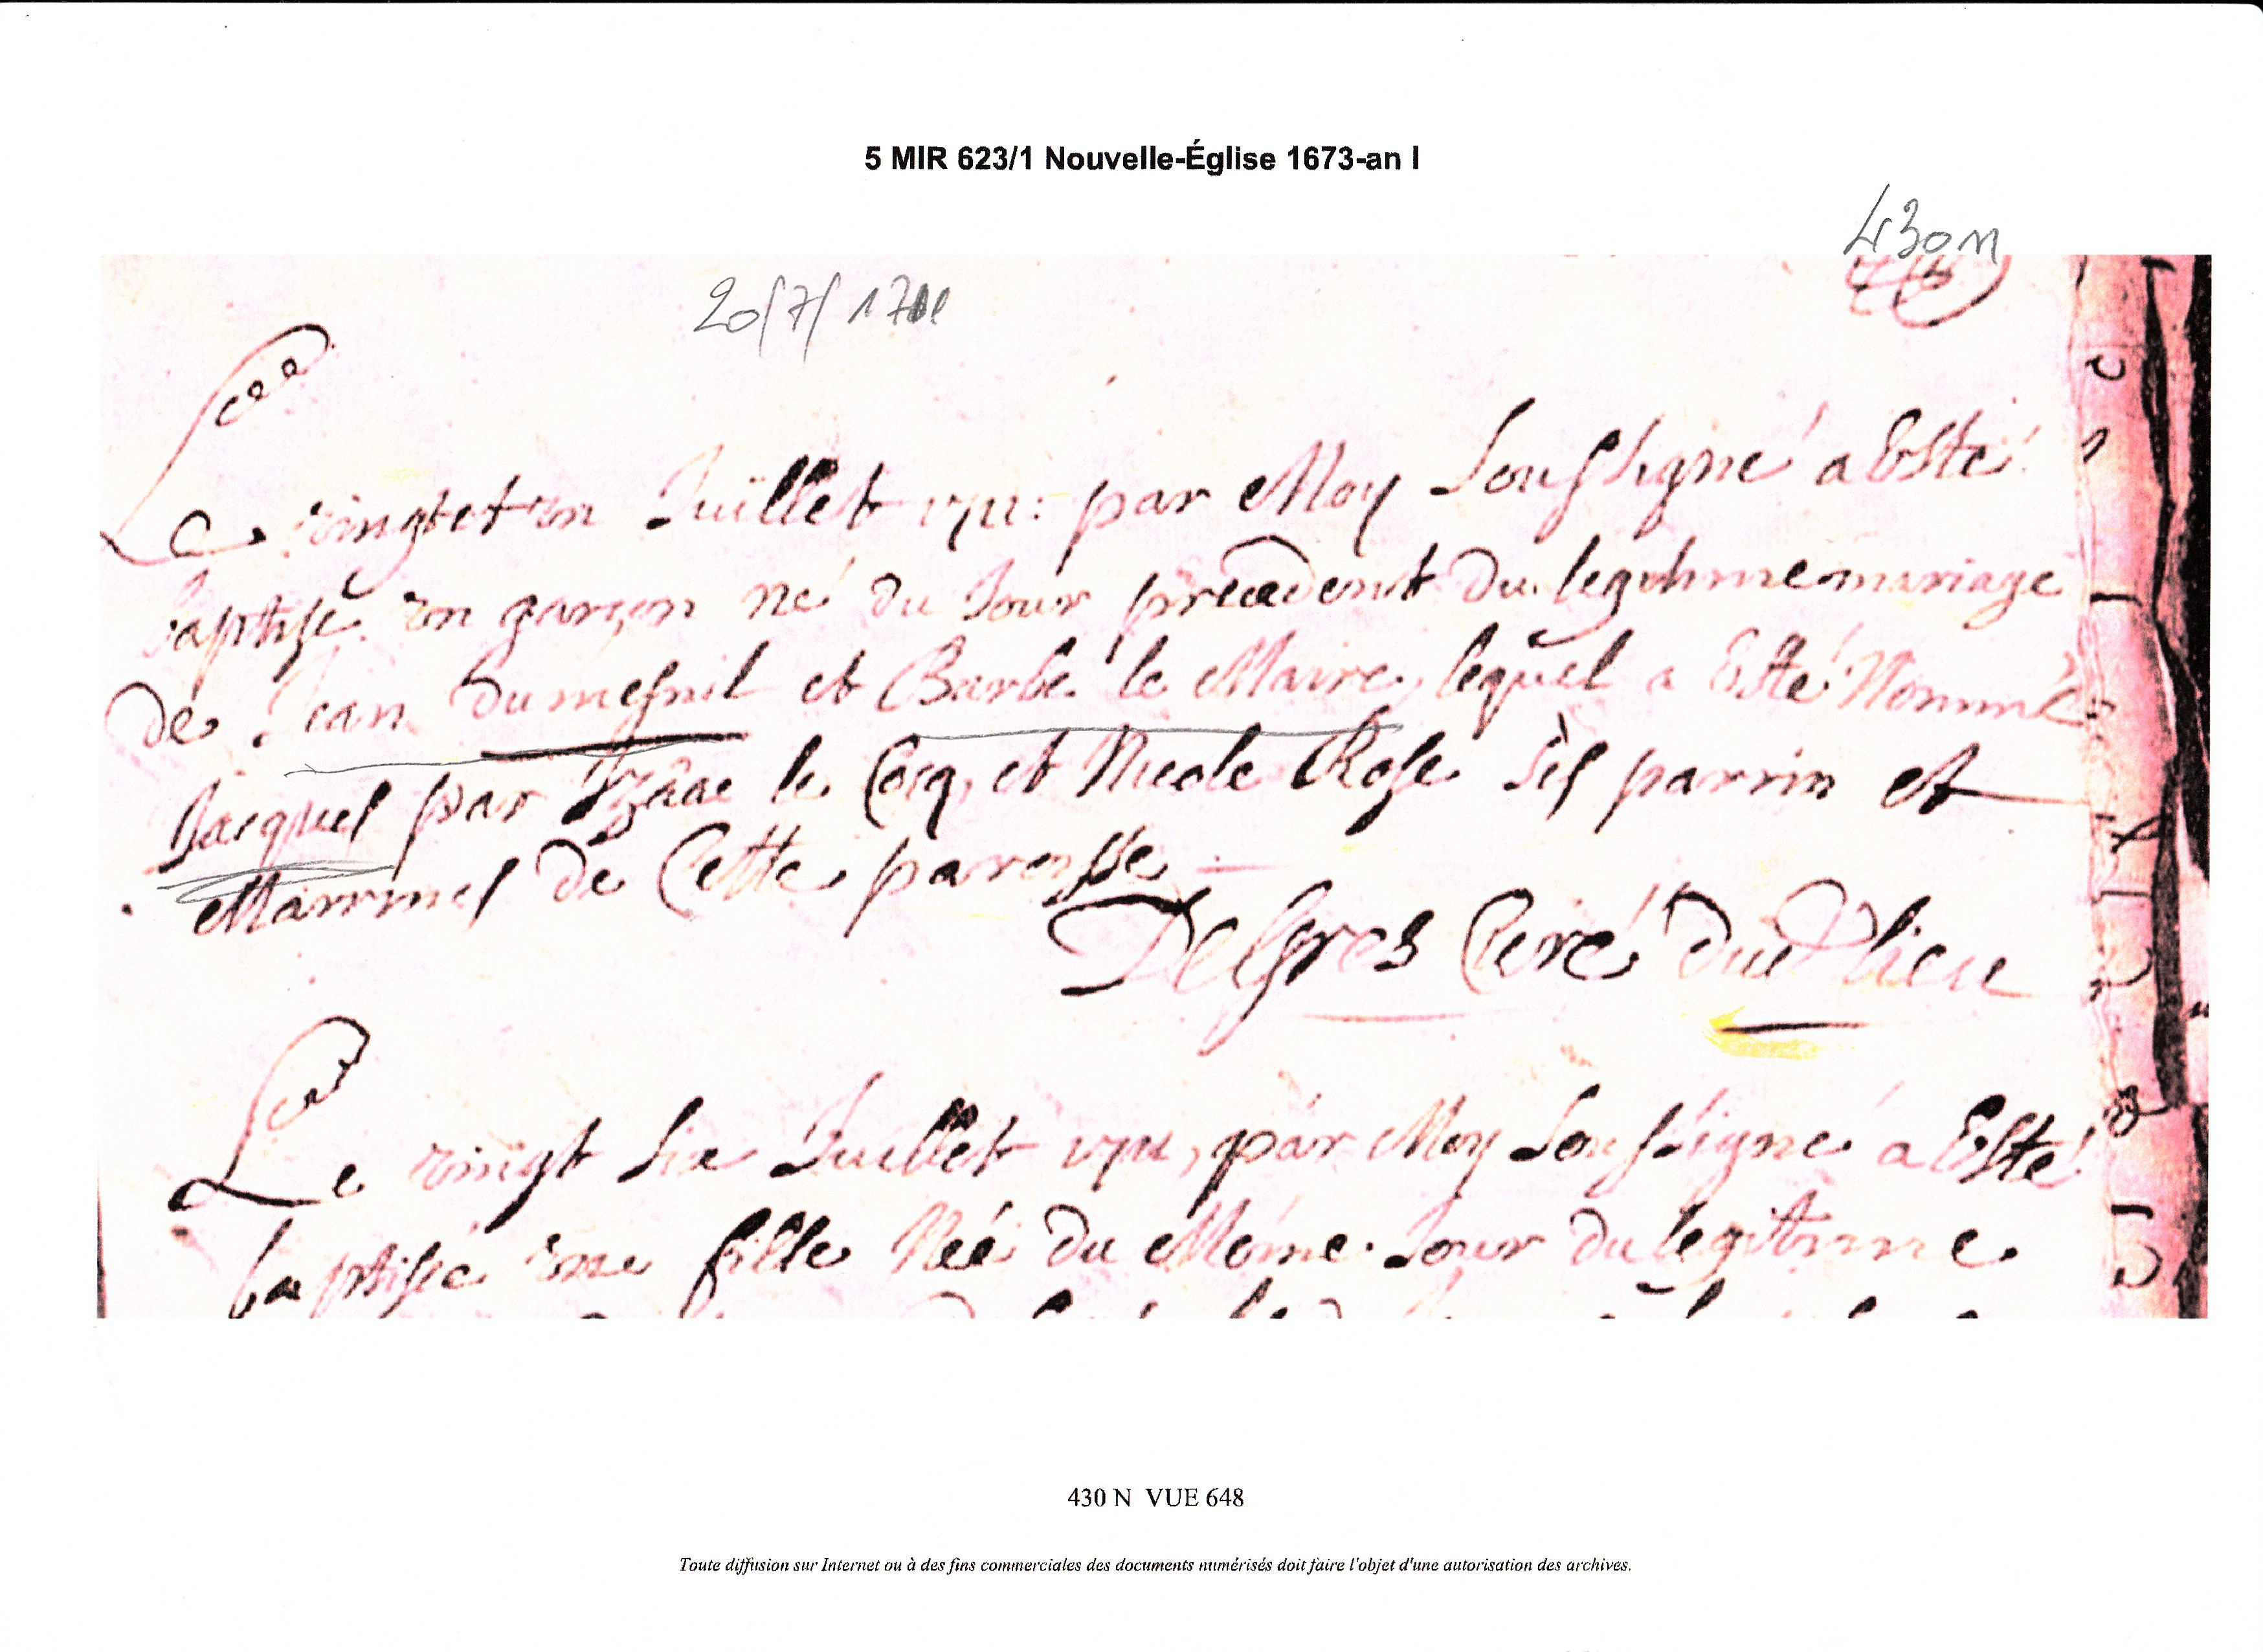 5 MIR 623/1 Nouvelle-Église 1673-an I
430 N
20/7/1711
Le vingt et un Juillet 1711: par Moy Soussigné a Esté
baptisé un garçon né du Jour précédent du legitime mariage
de Jean Dumesnil et Barbe le Maire, lequel a Esté Nommé
Jacques par Izâac le Cocq, et Nicole Rose ses parrin et
Marrines de Cette paroisse
Delgres Curé dud. lieu
Le vingt six Juillet 1711, par Moy Soussigné a Esté
baptisée une fille Née du Même Jour du legitime
430 N VUE 648
Toute diffusion sur Internet ou à des fins commerciales des documents numérisés doit faire l'objet d'une autorisation des archives.